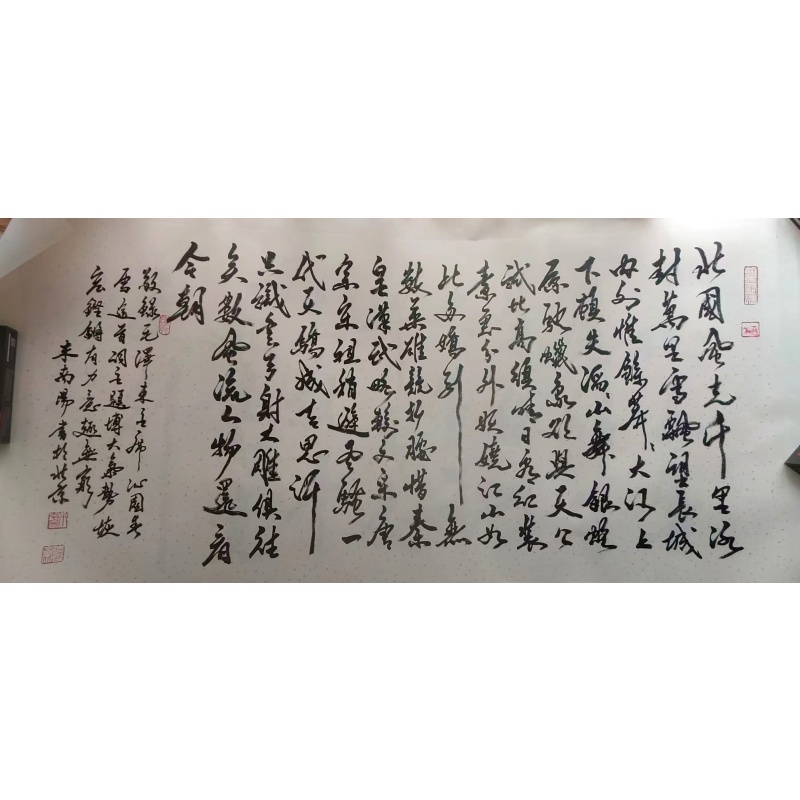 北國風光千里冰
封萬里雪飄望長城
內外惟餘莽〻大河上
下頓失滔〻山舞銀蛇
原馳蠟象欲與天公
試比高須晴日看紅裝
素裹分外妖嬈江山如
此多嬌引無
數英雄競折腰惜秦
皇漢武略輸文采唐
宗宋祖稍遜風騷一
代天驕成吉思汗
只識彎弓射大雕俱往
矣數風流人物還看
今朝
敬錄毛澤東主席沁園春
雪這首詞主題博大氣勢恢
宏鏗鏘有力意趣無窮
書於北京